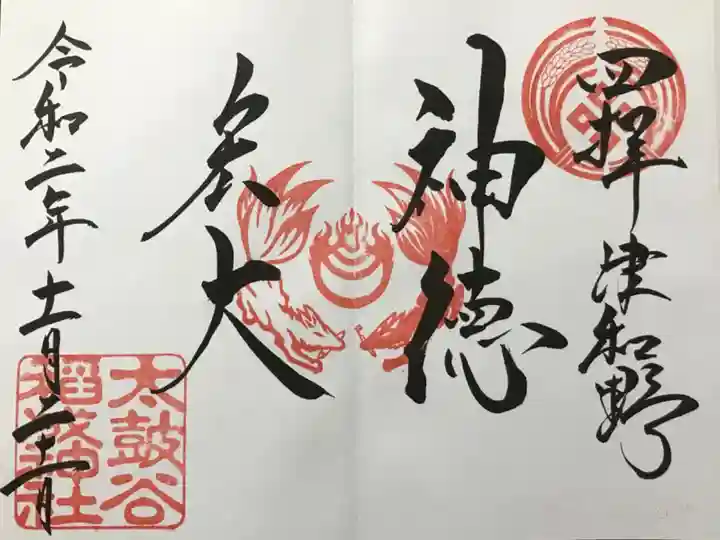 四拝 津和野
神徳
宏大
令和二年十一月二十一日
太鼓谷
稲成神社